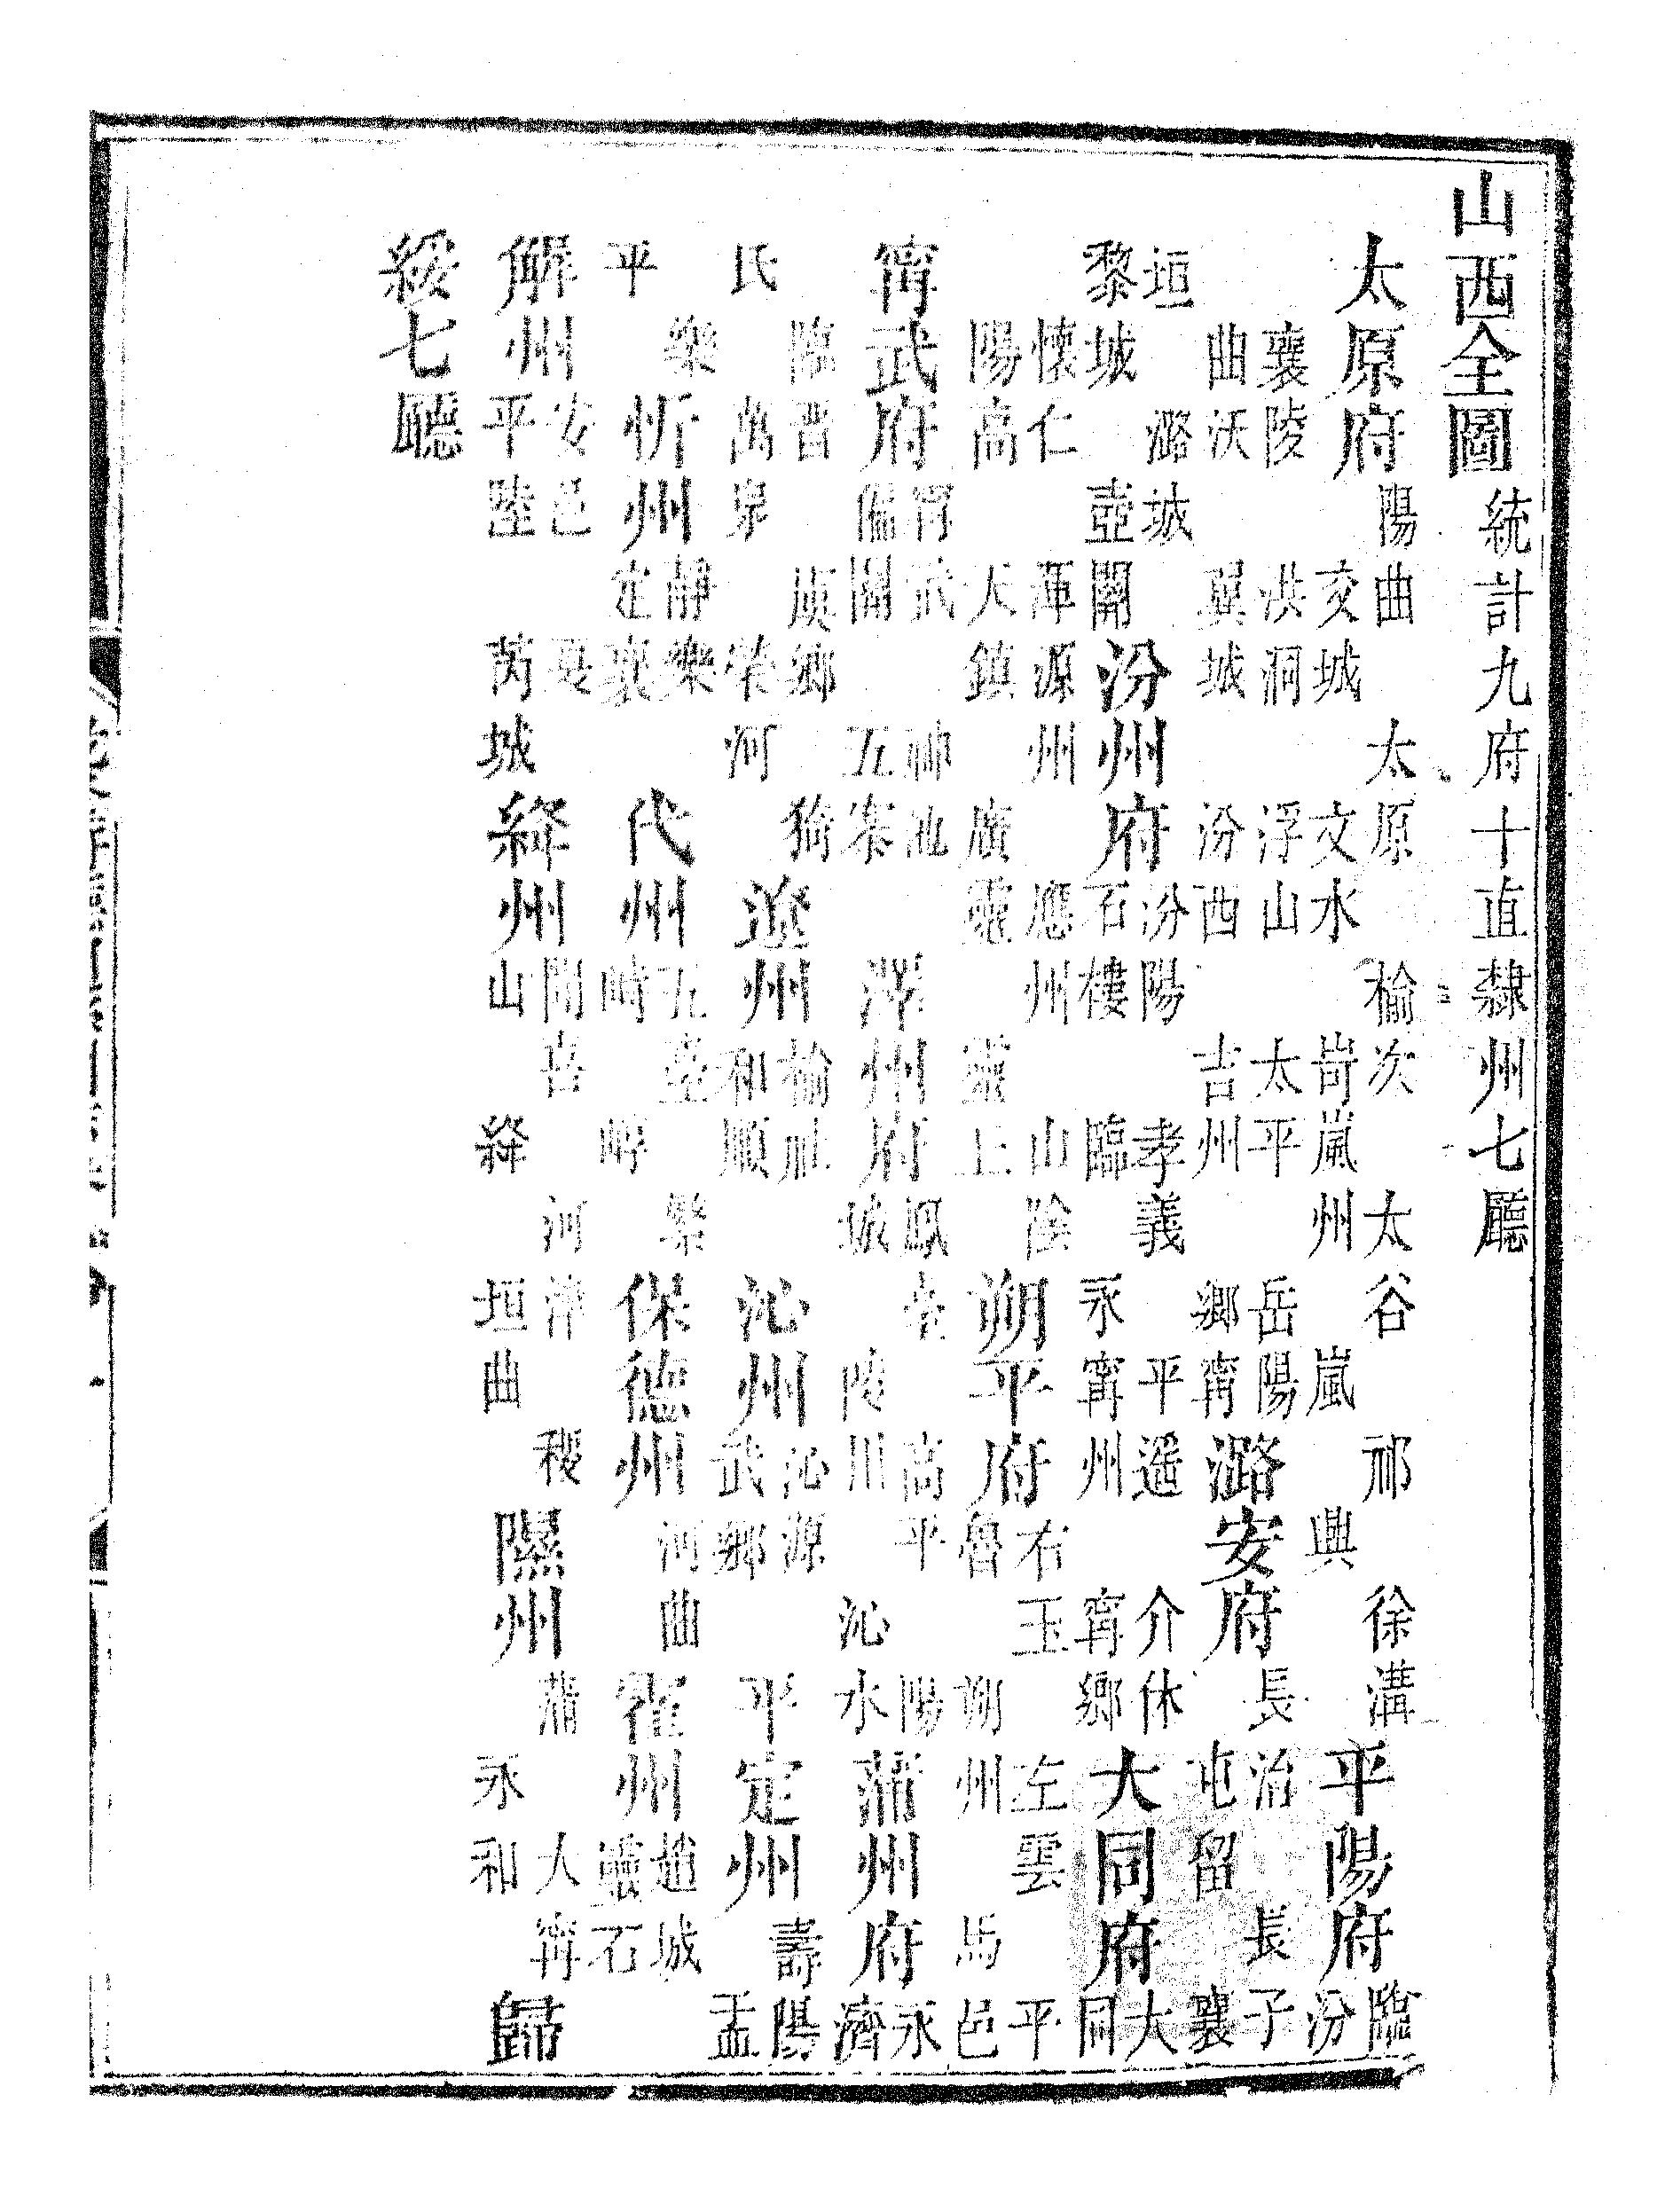 山西全圖統計九府十直隸州七廳
太原府陽曲太原榆次太谷祁徐溝交城文水岢嵐州嵐興平陽府臨汾
襄陵洪洞浮山太平岳陽曲沃翼城汾西吉州鄉甯潞安府長治長子屯留襄
垣潞城黎城壺關汾州府汾陽孝義平遙介休石樓臨永甯州甯鄉大同府大同
懷仁渾源州應州山陰陽高天鎮廣靈靈丘朔平府右玉左雲平魯朔州馬邑
甯武府甯武神池偏關五寨澤州府鳳臺高平陽城陵川沁水蒲州府永濟
臨晉虞鄉猗氏萬泉榮河遼州榆社和順沁州沁源武鄉平定州壽陽盂
樂平忻州靜樂定襄代州五臺繁峙崞保德州河曲霍州趙城靈石
解州安邑夏平陸芮城絳州聞喜河津稷山絳垣曲隰州蒲大甯永和歸
綏七廳